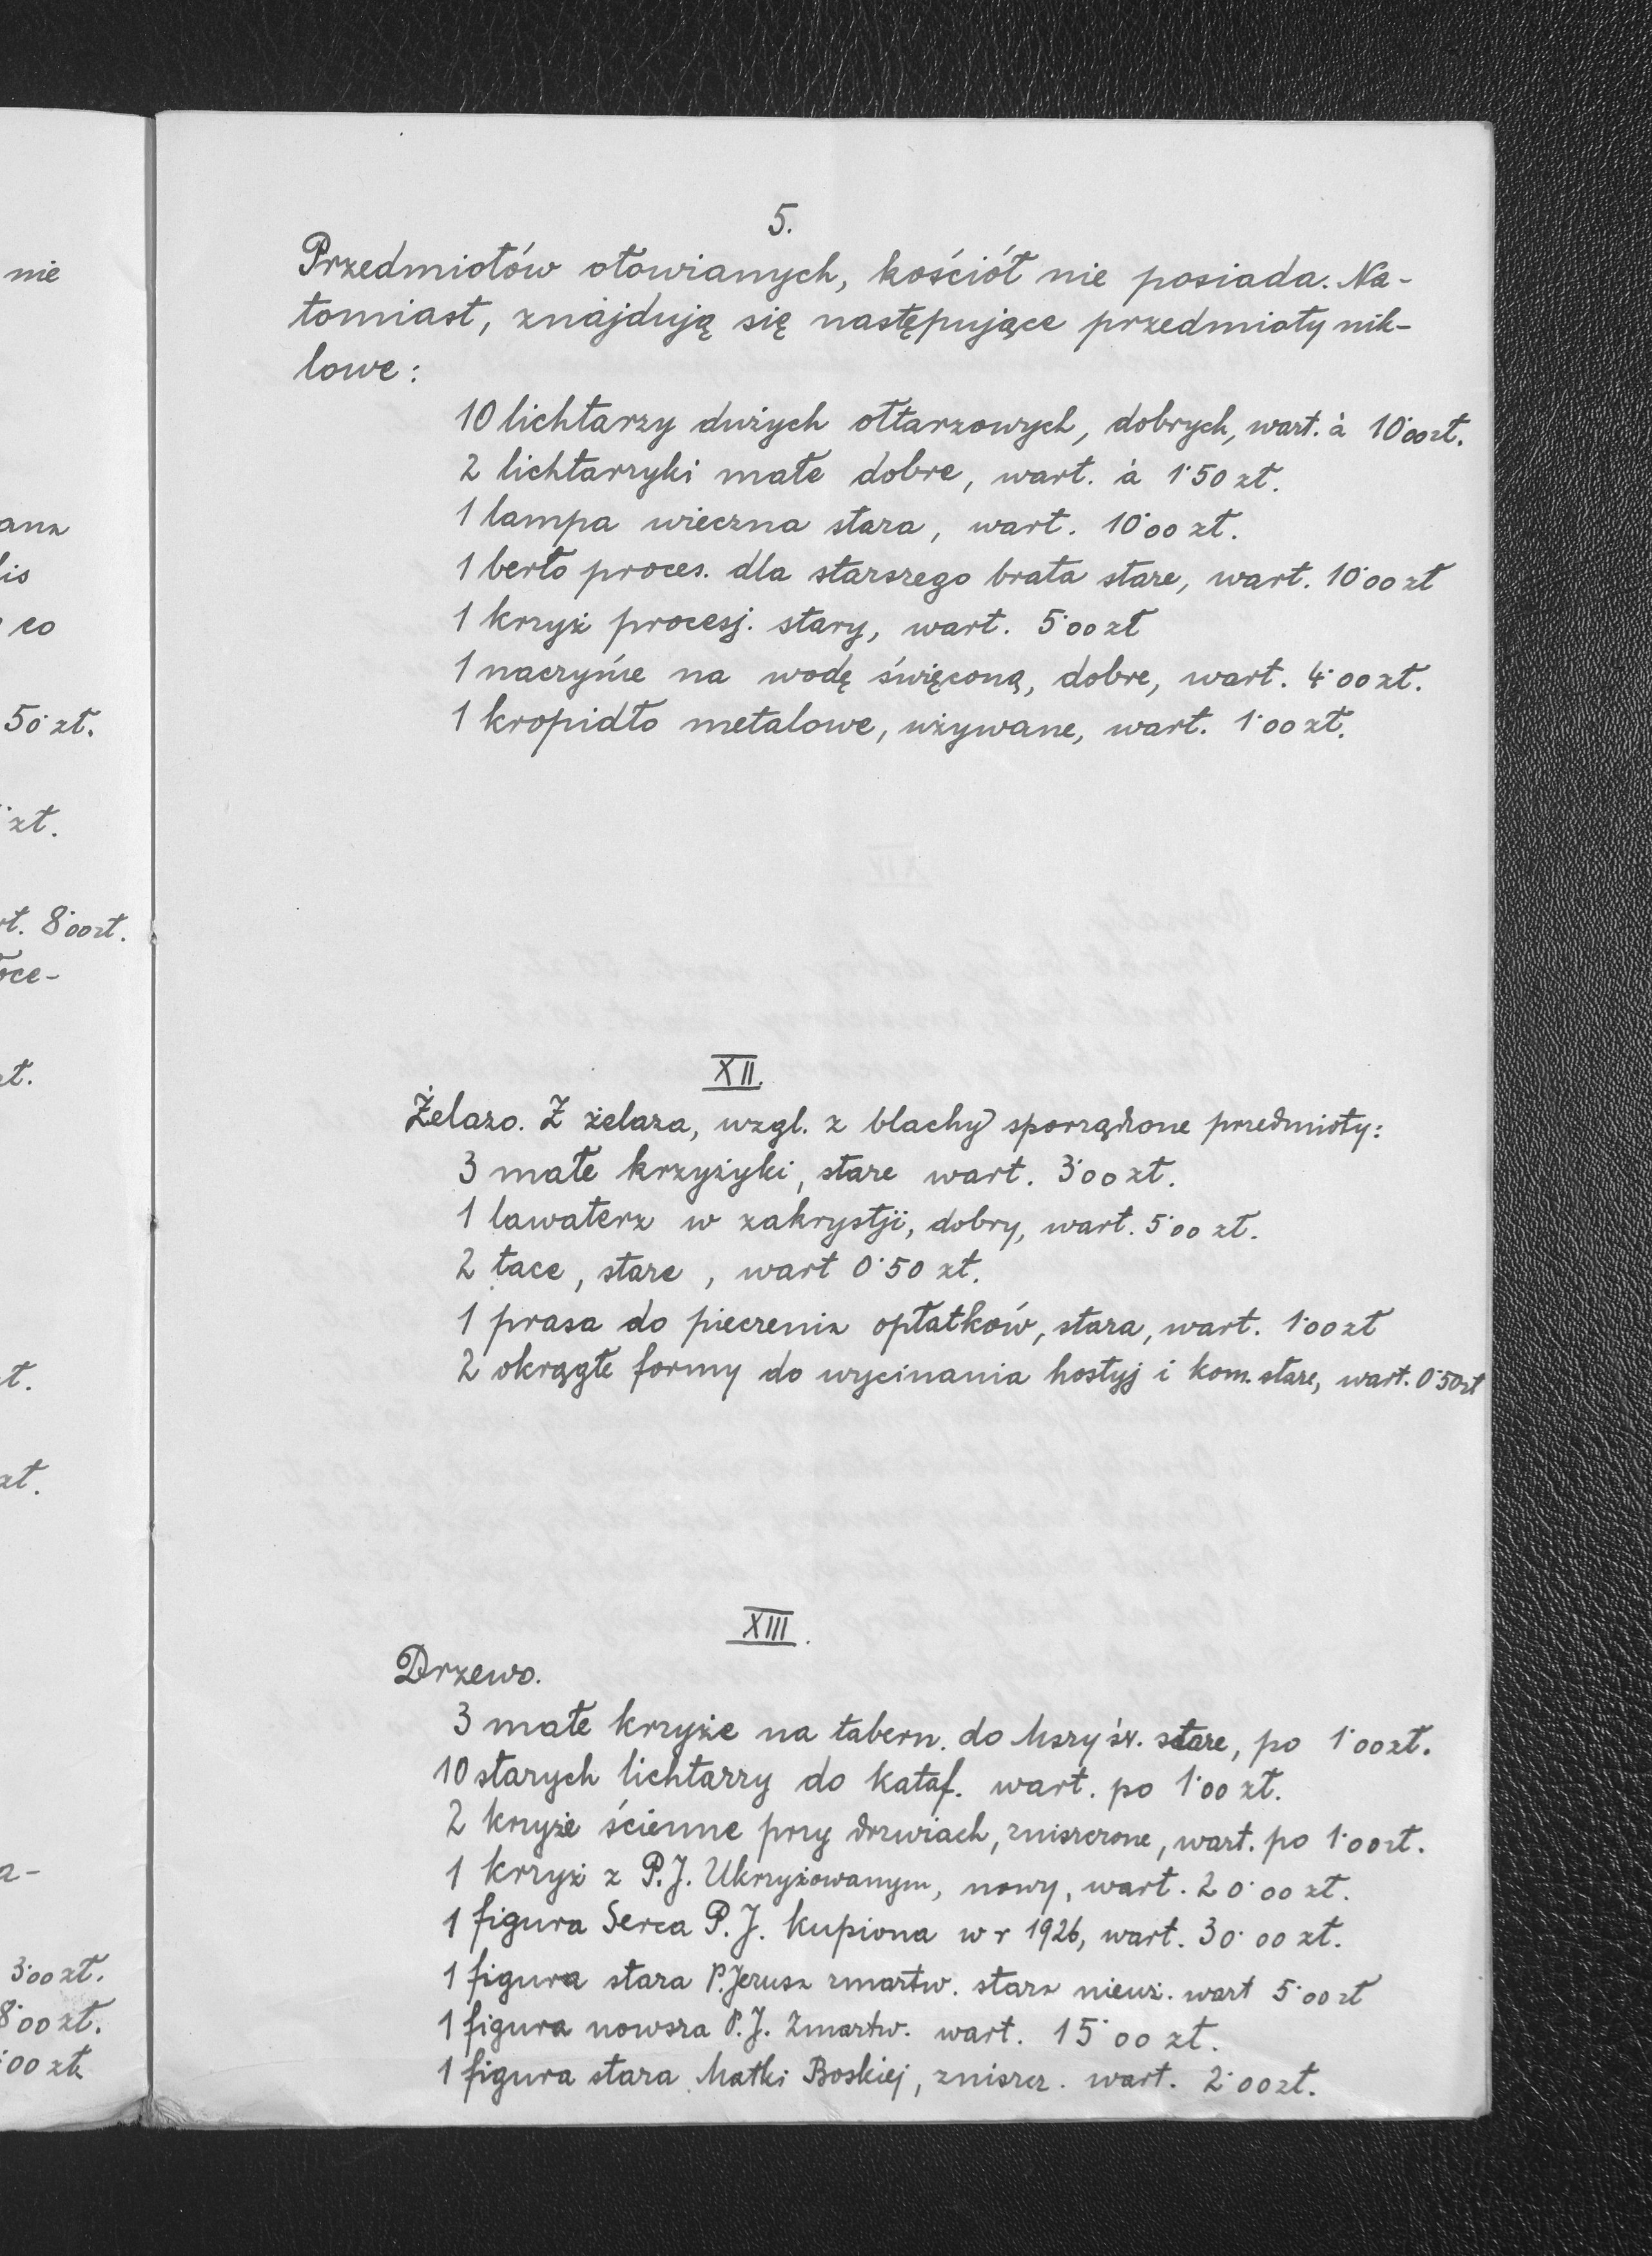 5.
Przedmiotów ołowianych, kościół nie posiada. Na-
tomiast, znajdują się następujące przedmioty nik-
lowe:
10 lichtarzy dużych ołtarzowych, dobrych, wart. à 10·00 zł.
2 lichtarzyki małe dobre, wart. à 1·50 zł.
1 lampa wieczna stara, wart. 10·00 zł.
1 berło proces. dla starszego brata stare, wart. 10·00 zł
1 krzyż procesj. stary, wart. 5·00 zł
1 naczynie na wodę święconą, dobre, wart. 4·00 zł.
1 kropidło metalowe, używane, wart. 1·00 zł.
XII.
Żelazo. Z żelaza, wzgl. z blachy sporządzone przedmioty:
3 małe krzyżyki, stare wart. 3·00 zł.
1 lawaterz w zakrystji, dobry, wart. 5·00 zł.
2 tace, stare, wart 0·50 zł.
1 prasa do pieczenia opłatków, stara, wart. 1·00 zł
2 okrągłe formy do wycinania hostyj i kom. stare, wart. 0·50 zł
XIII.
Drzewo.
3 małe krzyże na tabern. do Mszy św. stare, po 1·00 zł.
10 starych lichtarzy do kataf. wart. po 1·00 zł.
2 krzyże ścienne przy drzwiach, zniszczone, wart. po 1·00 zł.
1 krzyż z P.J. Ukrzyżowanym, nowy, wart. 20·00 zł.
1 figura Serca P.J. kupiona w r 1926, wart. 30·00 zł.
1 figura stara P. Jezusa zmartw. stara nieuż. wart 5·00 zł
1 figura nowsza P.J. Zmartw. wart. 15·00 zł.
1 figura stara Matki Boskiej, zniszcz. wart. 2·00 zł.
nie
co
50 zł.
zł.
8·00 zł.
3·00 zł.
8·00 zł.